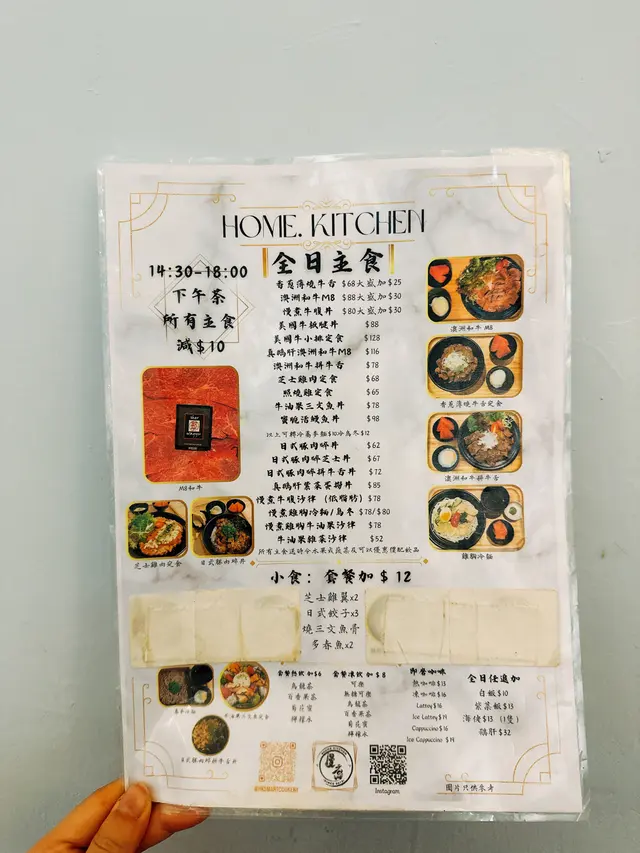 HOME. KITCHEN
全日主食
14:30-18:00
下午茶
所有主食
減$10
香蔥薄燒牛舌 $68大盛加$25
澳洲和牛M8 $88大盛加$30
慢煮牛腹丼 $88大盛加$30
美國牛板腱丼 $88
美國牛小排定食 $128
真鴨肝澳洲和牛M8 $116
澳洲和牛拼牛舌 $78
芝士雞肉定食 $68
照燒雞定食 $65
牛油果三文魚丼 $78
蜜脆活鰻魚丼 $98
以上可轉冷蕎麥麵$10冷烏冬$12
日式豚肉碎丼 $62
日式豚肉碎芝士丼 $67
日式豚肉碎拼牛舌丼 $72
真鴨肝紫菜蛋拼丼 $85
慢煮牛腹沙律 (低脂肪) $78
慢煮雞胸冷麵/烏冬 $78/$80
慢煮雞胸牛油果沙律 $78
牛油果雜菜沙律 $52
所有主食送時令水果或蔬菜及可以優惠價配飲品
澳洲和牛M8
香蔥薄燒牛舌定食
澳洲和牛拼牛舌
雞胸冷麵
M8和牛
芝士雞肉定食
日式豚肉碎丼
小食: 套餐加$12
芝士雞翼x2
日式餃子x3
燒三文魚骨
多春魚x2
日式豚肉碎拼牛舌丼
套餐熱飲加$6
烏龍茶
百香果茶
菊花蜜
檸檬水
套餐凍飲加$8
可樂
無糖可樂
烏龍茶
百香果茶
菊花蜜
檸檬水
即磨咖啡
熱咖啡$13
凍咖啡$16
Latte $16
Ice Latte $19
Cappuccino $16
Ice Cappuccino $19
全日任追加
白飯$10
紫菜飯$13
海倰$13 (1隻)
鵝肝$32
Instagram
圖片只供參考